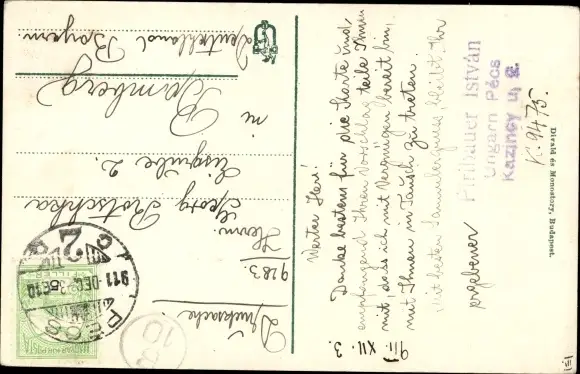 911. XII. 3.
Werter Herr!
Danke bestens für die Karte und
Ihren Vorschlag teile Ihnen
mit, dass ich mit Vergnügen bereit bin,
mit Ihnen in Tausch zu treten.
Mit besten Sammlergruss bleibt Ihr
ergebener
Piribauer István
Ungarn Pécs
Kazinczy u. 2.
K. 9475.
Divald és Monostory, Budapest.
Drucksache!
9183.
Herrn
Georg Protschka
Eisgrube 2.
in Bamberg
Deutschland Bayern
PÉCS
911 DEC
2
C
10